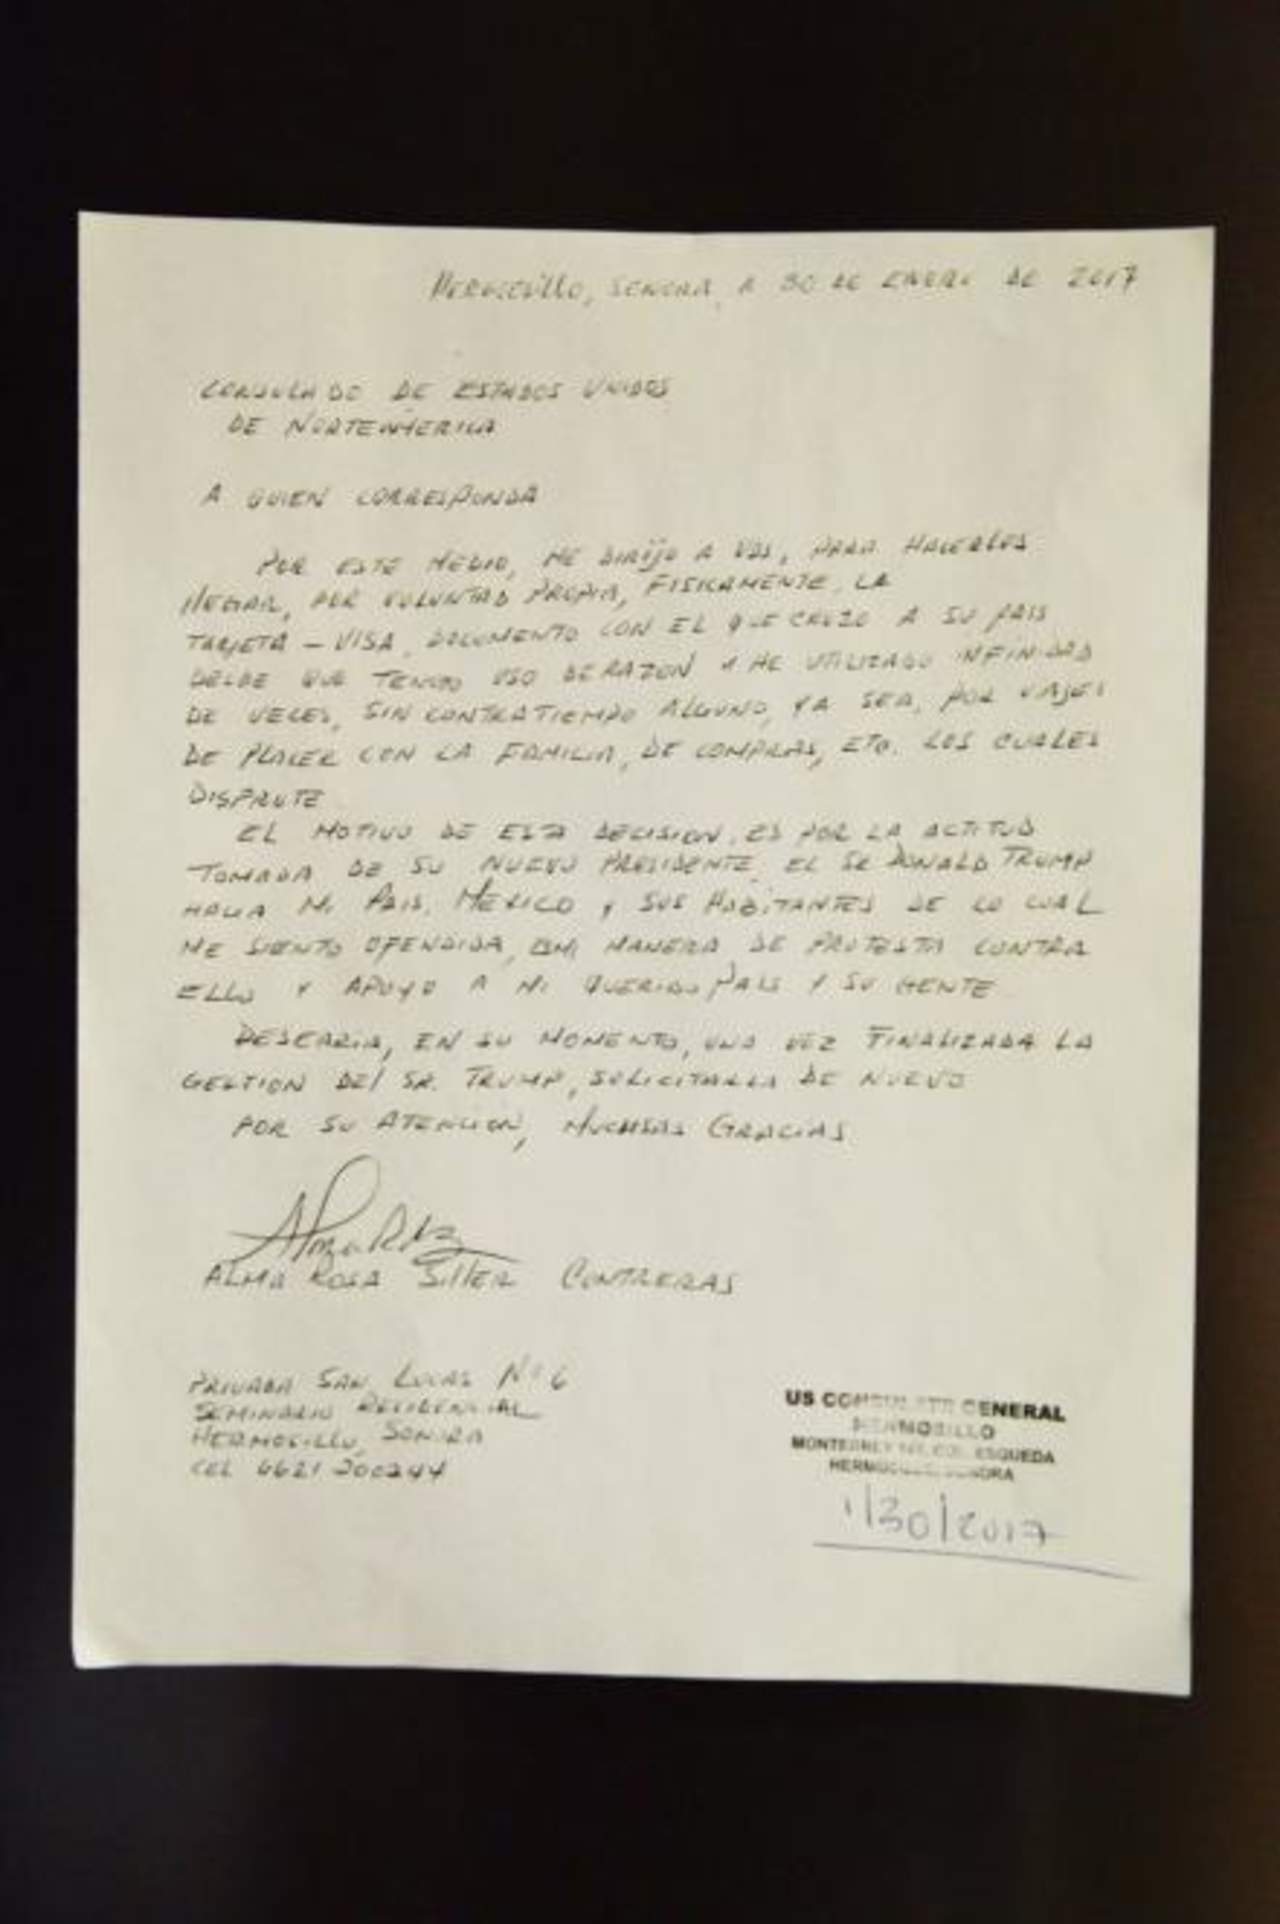 HERMOSILLO, SONORA, A 30 DE ENERO DE 2017
CONSULADO DE ESTADOS UNIDOS
DE NORTEAMERICA
A QUIEN CORRESPONDA
POR ESTE MEDIO, ME DIRIJO A UDS, PARA HACERLES
LLEGAR, POR VOLUNTAD PROPIA, FISICAMENTE, LA
TARJETA - VISA, DOCUMENTO CON EL QUE CRUZO A SU PAIS
DESDE QUE TENGO USO DE RAZON Y HE UTILIZADO INFINIDAD
DE VECES, SIN CONTRATIEMPO ALGUNO, YA SEA, POR VIAJES
DE PLACER CON LA FAMILIA, DE COMPRAS, ETC. LOS CUALES
DISFRUTE
EL MOTIVO DE ESTA DECISION, ES POR LA ACTITUD
TOMADA DE SU NUEVO PRESIDENTE, EL SR DONALD TRUMP
HACIA MI PAIS, MEXICO Y SUS HABITANTES DE LO CUAL
ME SIENTO OFENDIDA, MANERA DE PROTESTA CONTRA
ELLO Y APOYO A MI QUERIDO PAIS Y SU GENTE
DESEARIA, EN SU MOMENTO, UNA VEZ FINALIZADA LA
GESTION DEL SR. TRUMP, SOLICITARLA DE NUEVO
POR SU ATENCION, MUCHSAS GRACIAS
ALMA ROSA SILLER CONTRERAS
PRIVADA SAN LUCAS Nº 6
SEMINARIO RESIDENCIAL
HERMOSILLO, SONORA
CEL 6621 200244
US CONSULATE GENERAL
HERMOSILLO
MONTERREY COL. ESQUEDA
HERMOSILLO, SONORA
1/30/2017